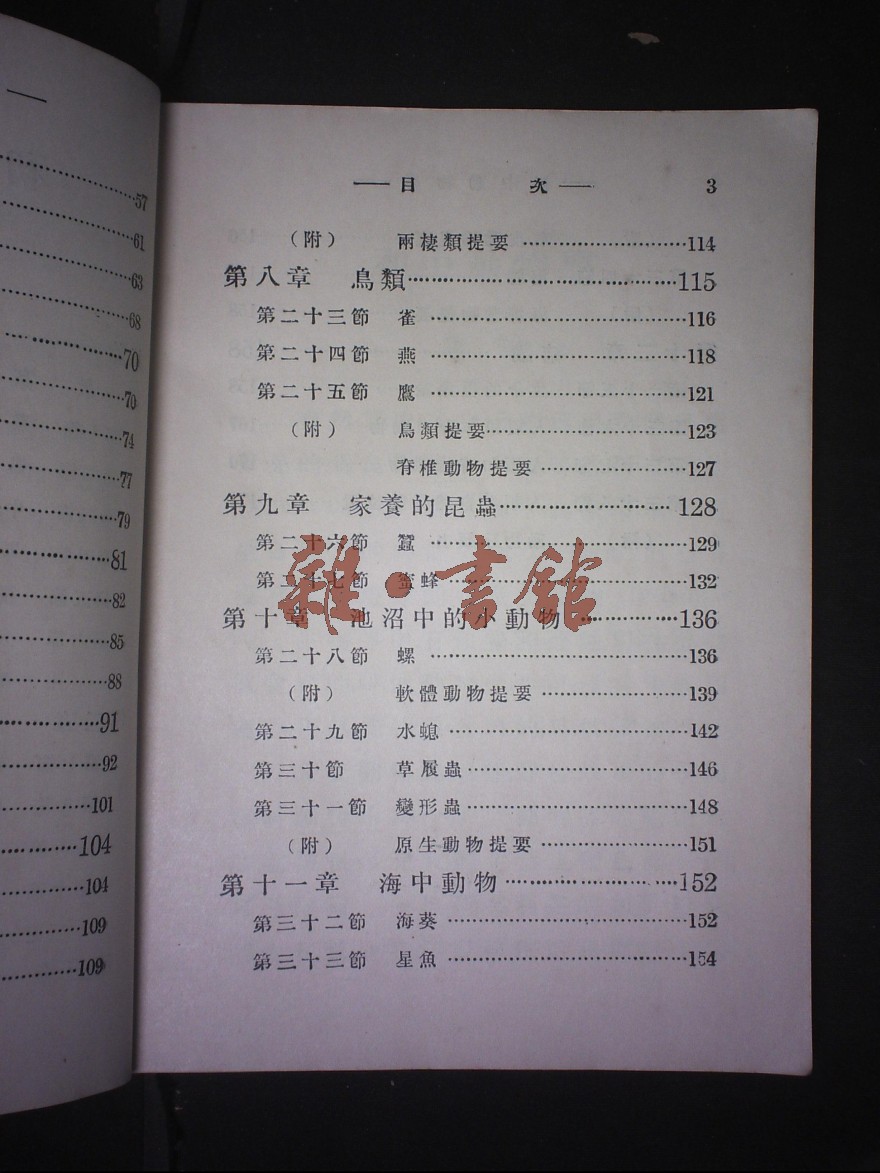 —
57
61
63
68
70
70
74
77
79
81
82
85
88
91
92
101
104
104
109
109
—目 次— 3
(附) 兩棲類提要………………114
第八章 鳥類………………115
第二十三節 雀………………116
第二十四節 燕………………118
第二十五節 鷹………………121
(附) 鳥類提要………………123
脊椎動物提要………………127
第九章 家養的昆蟲………………128
第二十六節 蠶………………129
第二十七節 蜜蜂………………132
第十章 池沼中的小動物………………136
第二十八節 螺………………136
(附) 軟體動物提要………………139
第二十九節 水螅………………142
第三十節 草履蟲………………146
第三十一節 變形蟲………………148
(附) 原生動物提要………………151
第十一章 海中動物………………152
第三十二節 海葵………………152
第三十三節 星魚………………154
雜·書館